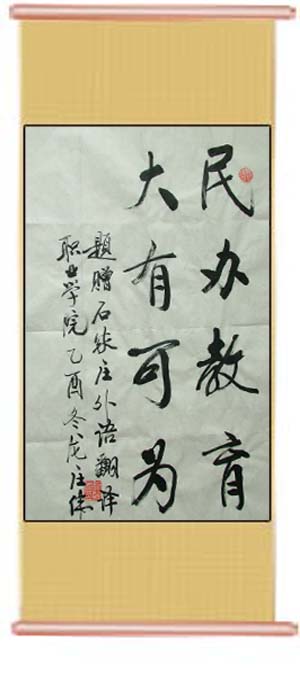 民办教育
大有可为
题赠石家庄外语翻译
职业学院乙酉冬龙庄伟